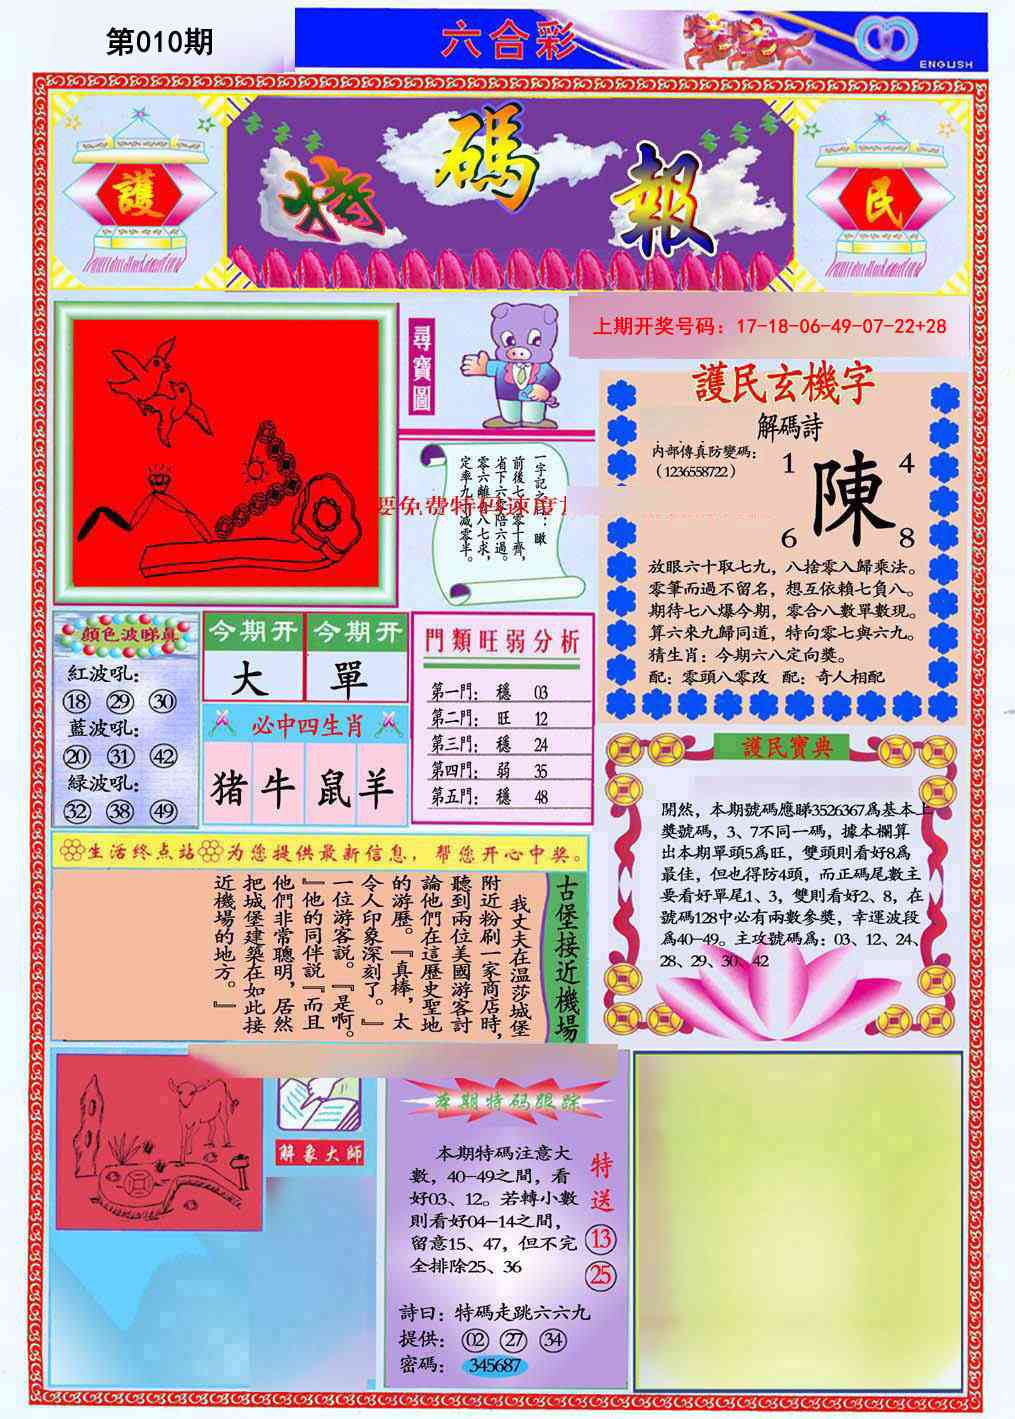 第010期
六合彩
ENGLISH
護
特碼報
民
尋寶圖
上期开奖号码：17-18-06-49-07-22+28
護民玄機字
解碼詩
内部傳真防變碼：
（1236558722）
1
4
陳
6
8
放眼六十取七九，八捨零入歸乘法。
零筆而過不留名，想互依賴七負八。
期待七八爆今期，零合八數單數現。
算六來九歸同道，特向零七與六九。
猜生肖：今期六八定向獎。
配：零頭八零改 配：奇人相配
一字記之
：瞰
前後七
零十齊，
省下六
陪六過。
零六離
八七求，
定率九
減零半。
要免费特码速度
顔色波睇真
紅波吼：
18 29 30
藍波吼：
20 31 42
緑波吼：
32 38 49
今期开 今期开
大 單
必中四生肖
猪 牛 鼠 羊
門類旺弱分析
第一門： 穩 03
第二門： 旺 12
第三門： 穩 24
第四門： 弱 35
第五門： 穩 48
護民寶典
開然，本期號碼應睇3526367爲基本上
獎號碼，3、7不同一碼，據本欄算
出本期單頭5爲旺，雙頭則看好8爲
最佳，但也得防4頭，而正碼尾數主
要看好單尾1、3，雙則看好2、8，在
號碼128中必有兩數參獎，幸運波段
爲40-49。主攻號碼爲：03、12、24、
28、29、30、42
生活终点站 为您提供最新信息，帮您开心中奖。
古堡接近機場
我丈夫在温莎城堡
附近粉刷一家商店時，
聽到兩位美國游客討
論他們在這歷史聖地
的游歷。『真棒，太
令人印象深刻了。』
一位游客説。『是啊。
『他的同伴説『而且
他們非常聰明，居然
把城堡建築在如此接
近機場的地方。』
解象大師
本期特码跟踪
本期特码注意大
數，40-49之間，看
好03、12。若轉小數
則看好04-14之間，
留意15、47，但不完
全排除25、36
特送
13
25
詩曰：特碼走跳六六九
提供： 02 27 34
密碼： 345687